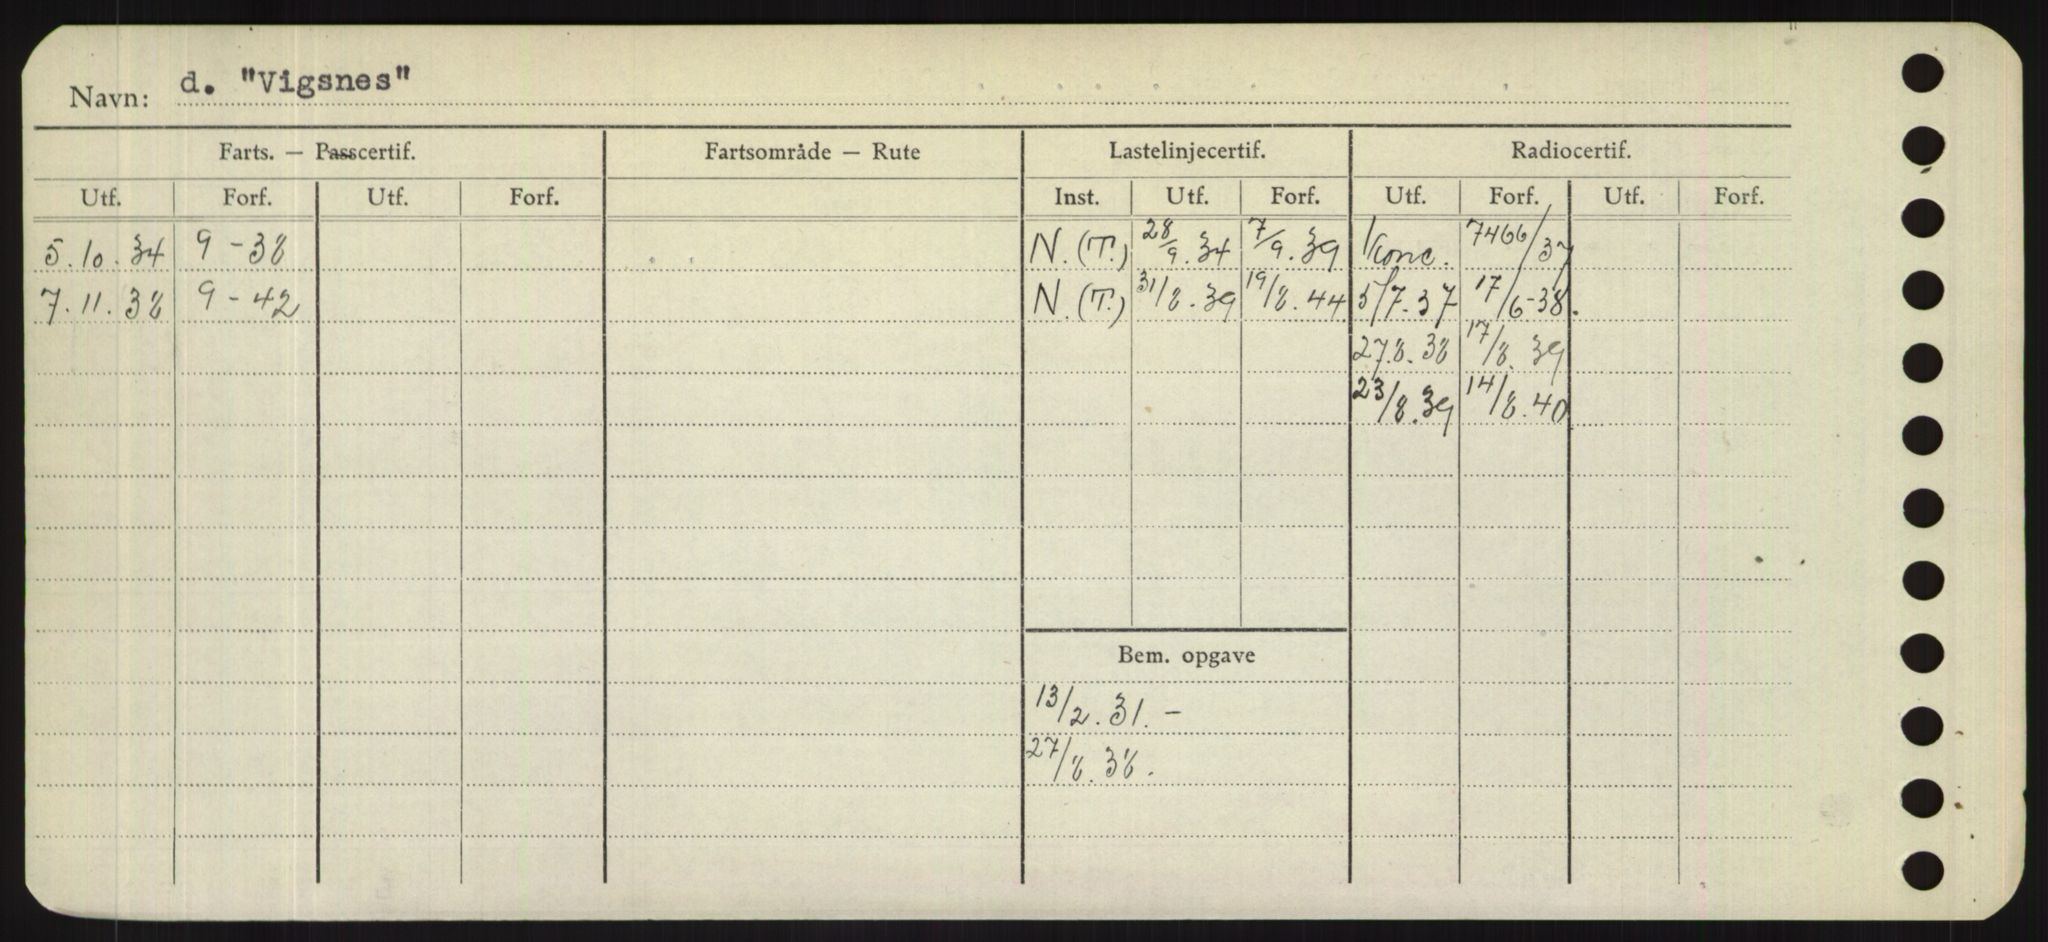 Navn: d. "Vigsnes"
Farts. — Passcertif. Fartsområde — Rute Lastelinjecertif. Radiocertif.
Utf. Forf. Utf. Forf. Inst. Utf. Forf. Utf. Forf. Utf. Forf.
5.10.34 9-38 N.(T.) 28/9.34 7/9.39 Konc. 7466/37
7.11.38 9-42 N.(T.) 31/8.39 19/8.44 5/7.37 17/6-38.
27.8.38 17/8.39
23/8.39 14/8.40
Bem. opgave
13/2.31.-
27/8.38.